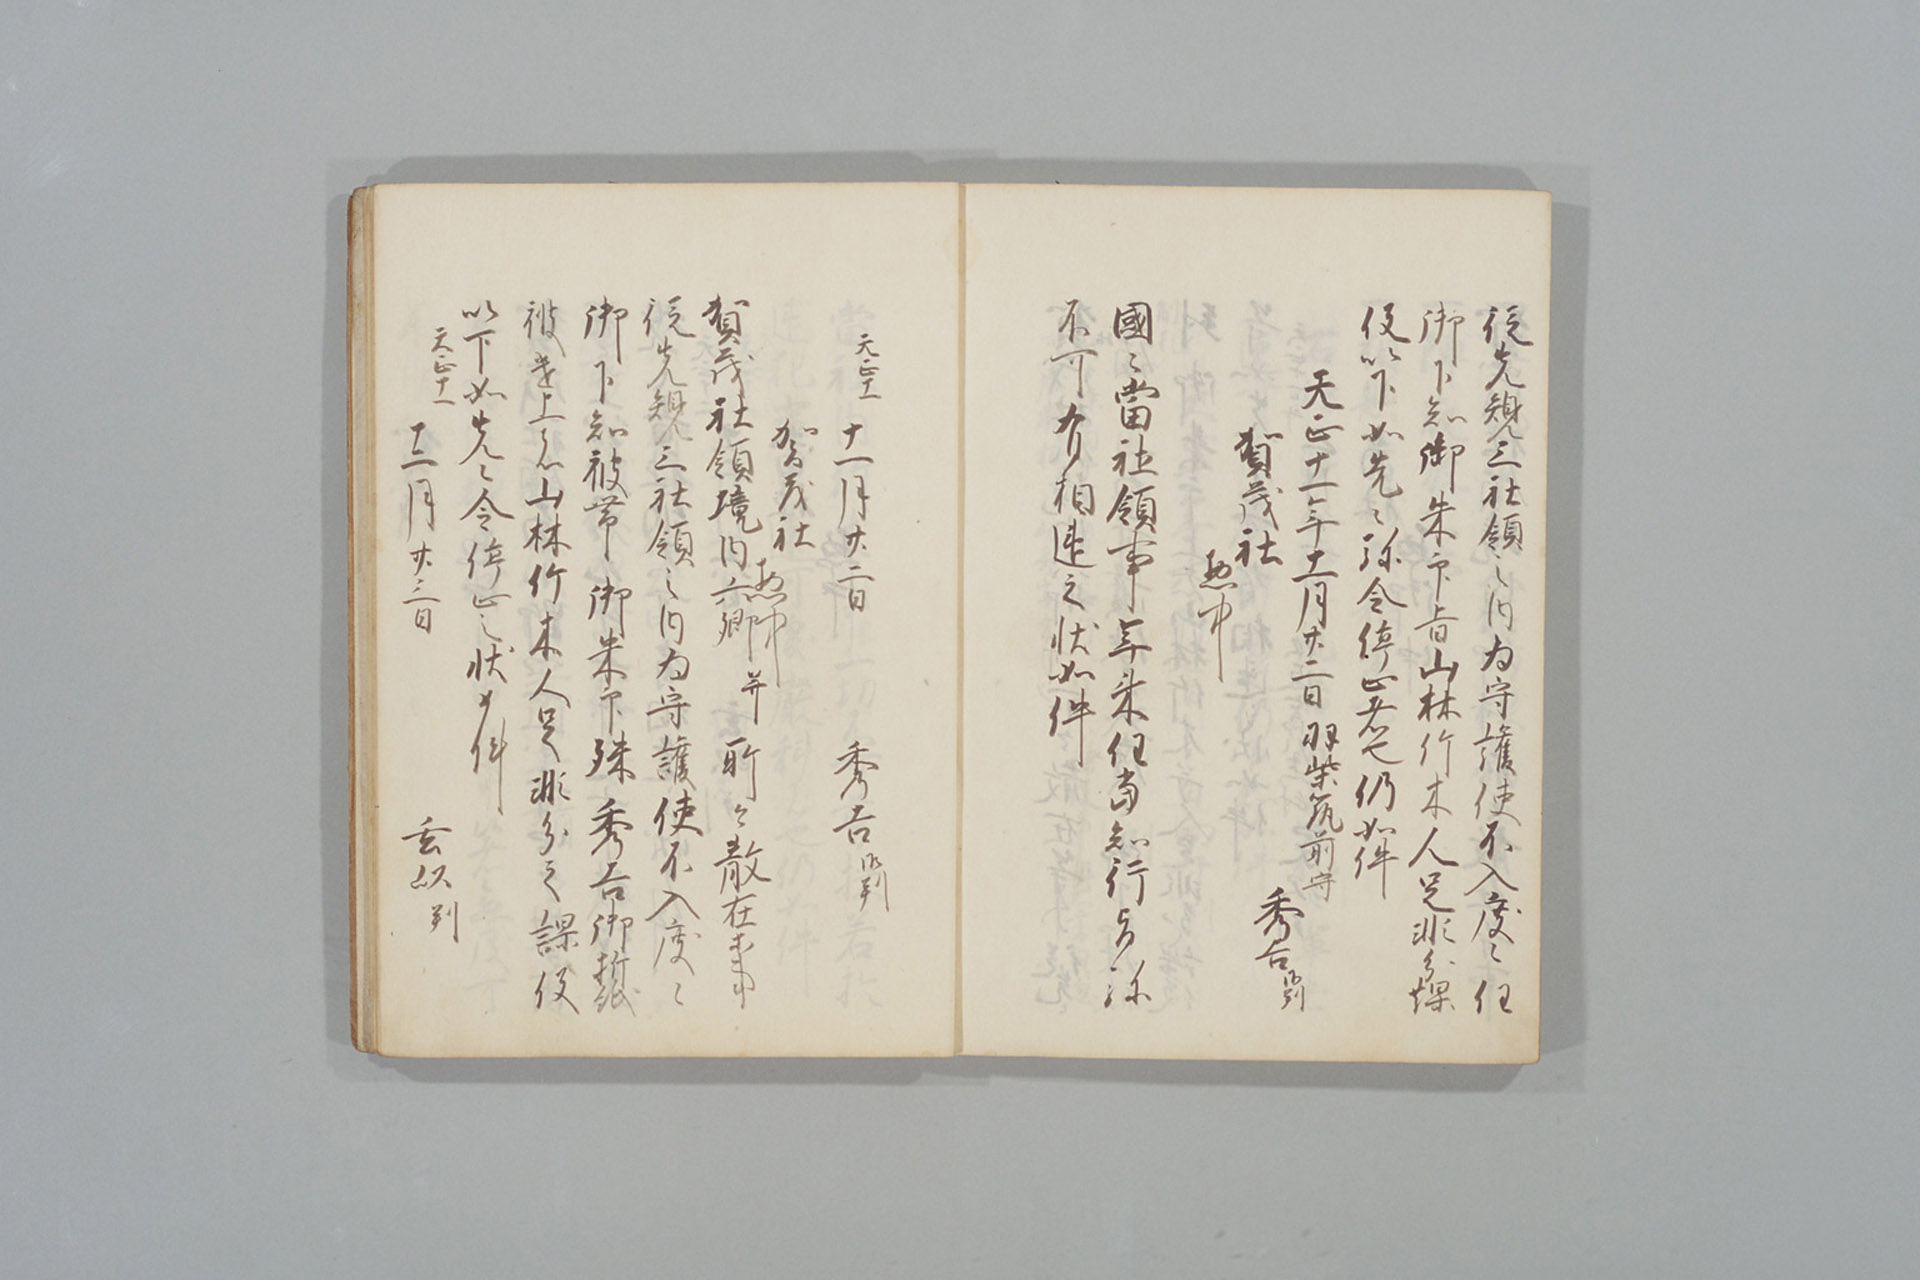 從先規三社領之内為守護使不入度々任
御下知御朱印旨山林竹木人足非分課
役以下如先々弥令停止者也仍如件
天正十一年十一月廿二日 羽柴筑前守
秀吉御判
賀茂社
惣中
國々當社領事年来任當知行旨弥
不可有相違之状如件
天正十一
十一月廿二日 秀吉御判
賀茂社
惣中
賀茂社領境内六郷并所々散在事
從先規三社領之内為守護使不入度々
御下知被帯 御朱印殊秀吉御誓紙
被遣上者山林竹木人足非分之課役
以下如先々令停止之状如件
天正十一
十二月廿三日 玄以判